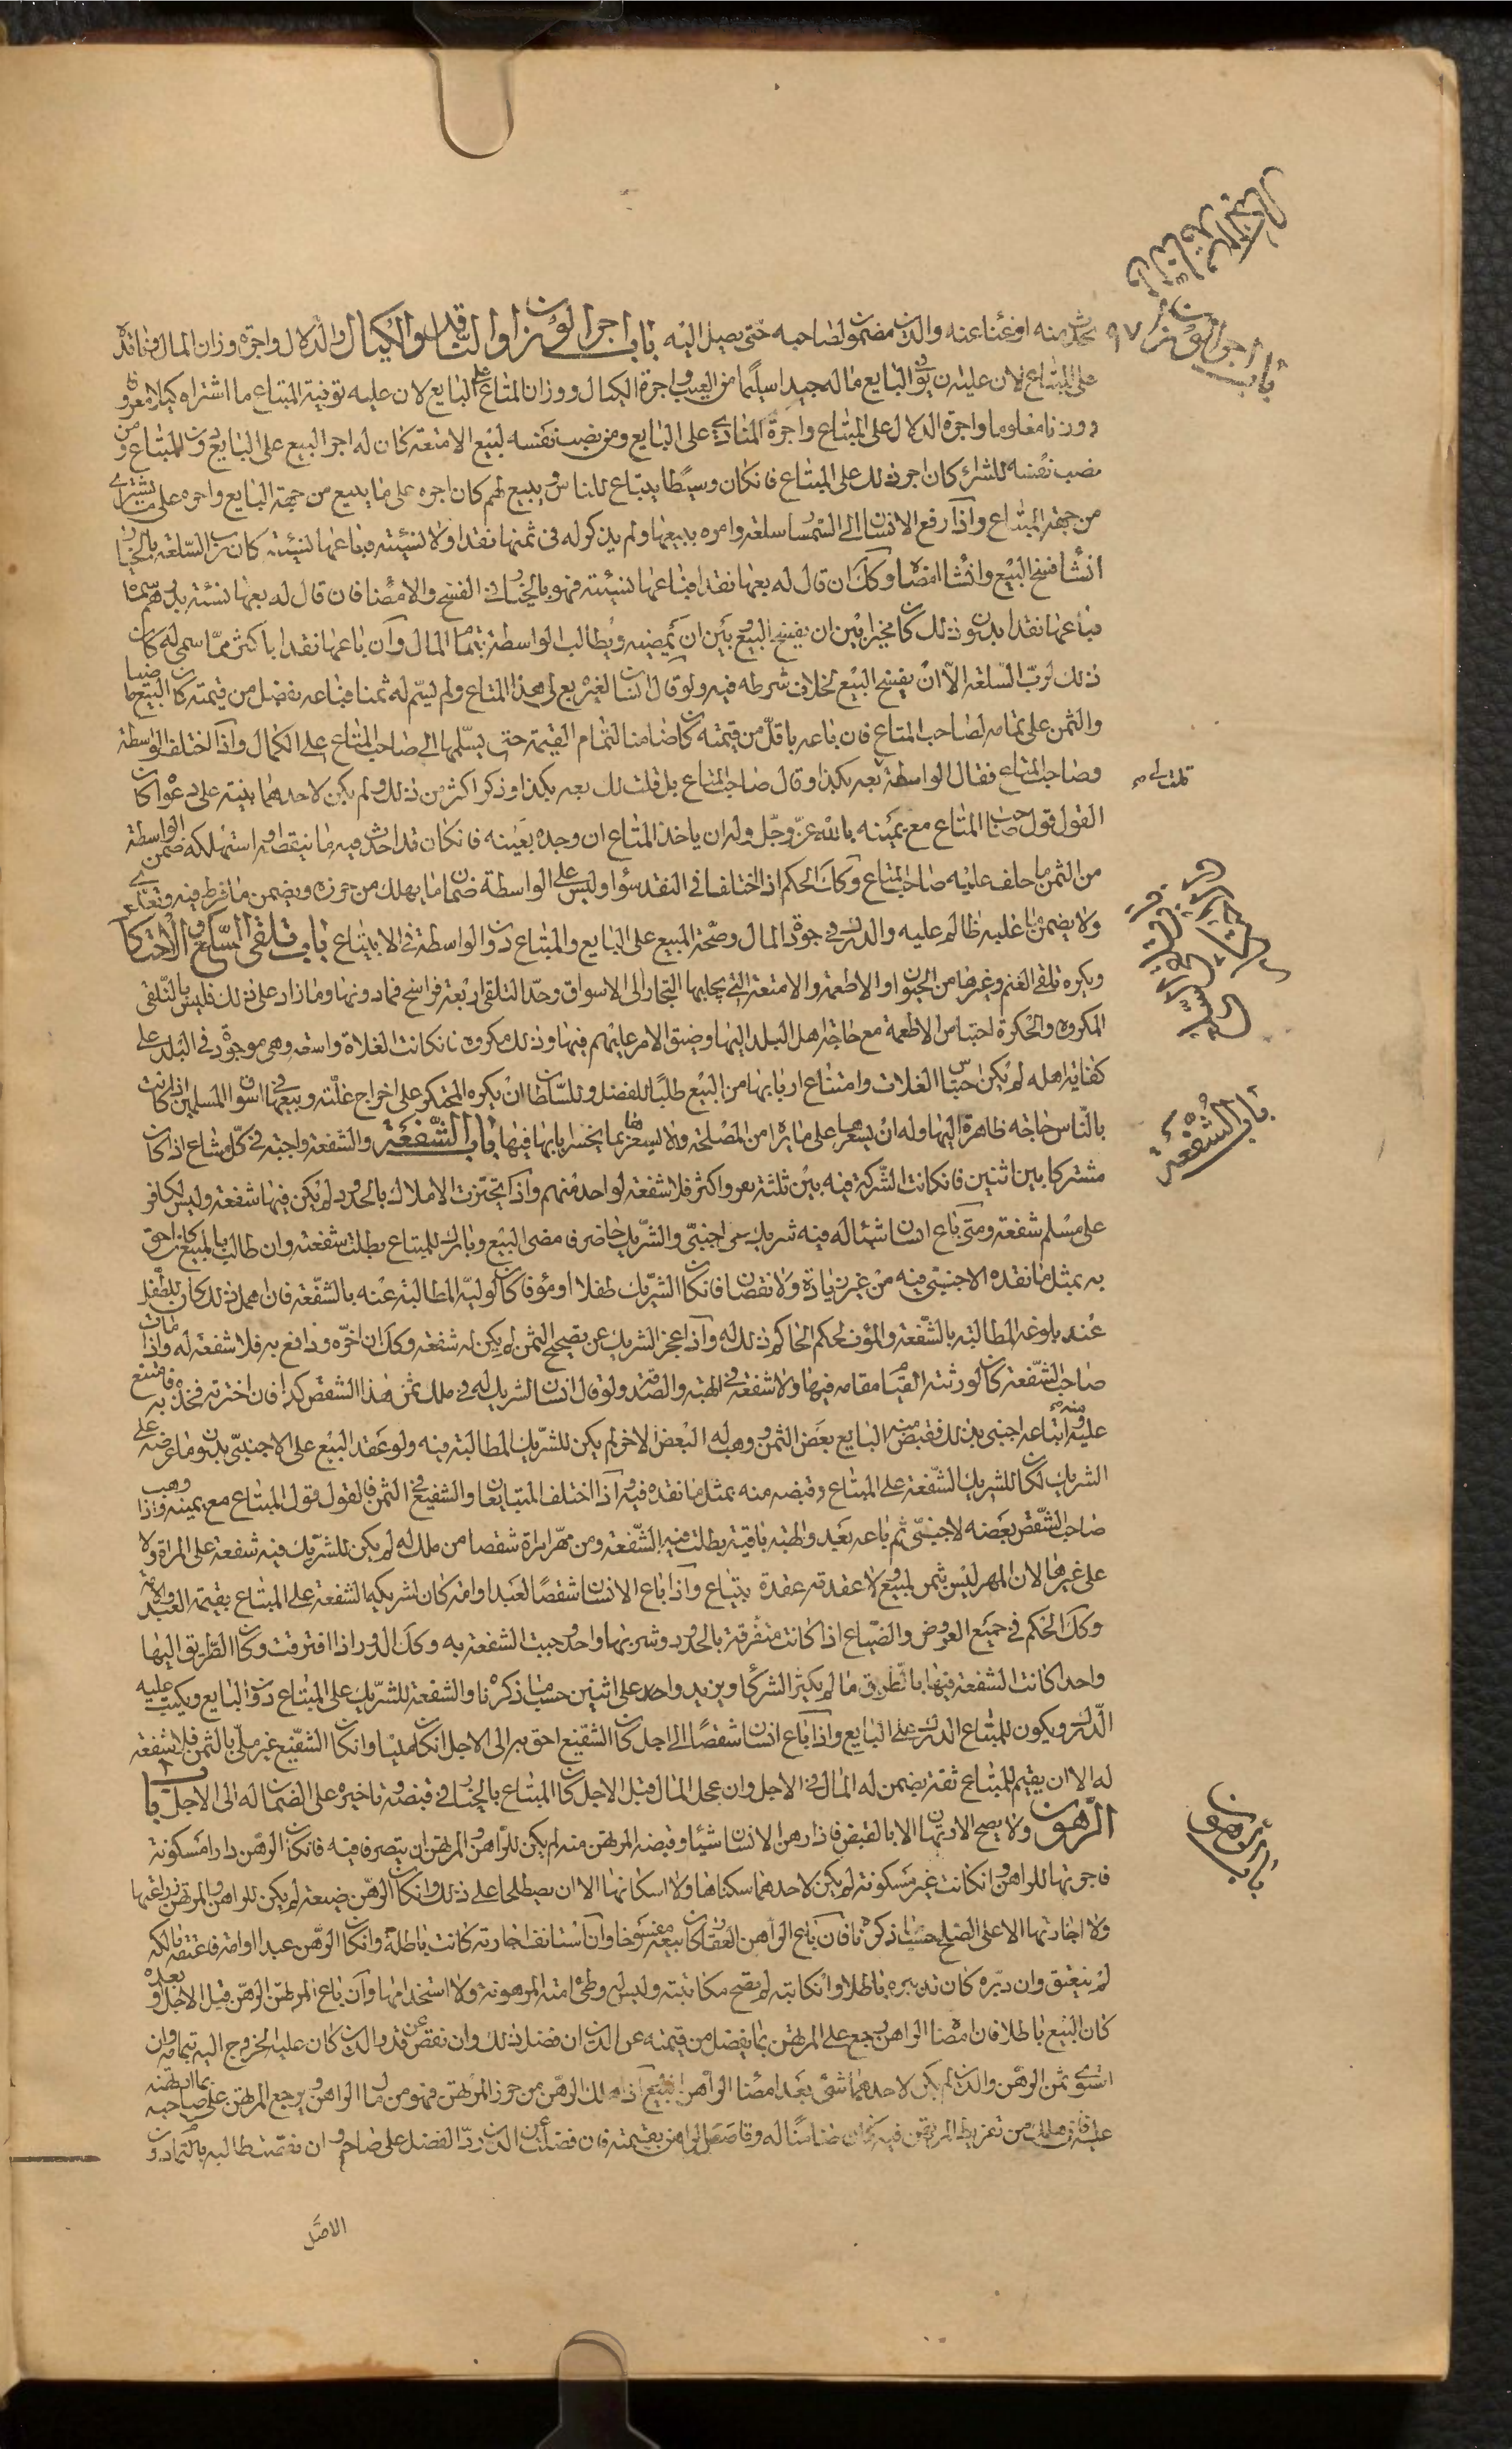 باب اجر الوزان
والناقد والكيال
٩٧
بحدث منه او غنا عنه والدين مضمون لصاحبه حتى يصل اليه باب اجر الوزان والناقد والكيال والدلال واجرة وزان المال وناقده
على المبتاع لان عليه ان يوفى البايع ماله جيدا سليما من العيوب واجرة الكيال ووزان المتاع على البايع لان عليه توفية المبتاع ما اشتراه كيلا معروفا
ووزنا معلوما واجرة الدلال على المبتاع واجرة المنادى على البايع ومن نصب نفسه لبيع الامتعة كان له اجر البيع على البايع دون المبتاع ومن
نصب نفسه للشراء كان اجر ذلك على المبتاع فان كان وسيطا يبتاع للناس ويبيع لهم كان اجره على ما يبيع من جهة البايع واجره على ما يشترى
من جهة المبتاع واذا رفع الانسان الى السمسار سلعة وامره ببيعها ولم يذكر له فى ثمنها نقدا ولا نسيئة فباعها نسيئة كان رب السلعة بالخيار
ان شا فسخ البيع وان شا امضاه وكك ان قال له بعها نقدا فباعها نسيئة فهو بالخيار فى الفسخ والامضا فان قال له بعها نسئة بدراهم سماها
فباعها نقدا بدون ذلك كان مخيرا بين ان يفسخ البيع وبين ان يمضيه ويطالب الواسطة بتمام المال وان باعها نقدا باكثر مما سمى له كان
ذلك لرب السلعة الا ان يفسخ البيع لخلاف شرطه فيه ولو قال انسان لغيره بع لى هذا المتاع ولم يسم له ثمنا فباعه بفضل من قيمته كان البيع ماضيا
والثمن على تمامه لصاحب المتاع فان باعه باقل من قيمته كان ضامنا لتمام القيمة حتى يسلمها الى صاحب المتاع على الكمال واذا اختلف الواسطة
وصاحب المتاع فقال الواسطة بعه بكذا وقال صاحب المتاع بل قلت لك بعه بكذا وذكر اكثر من ذلك ولم يكن لاحدهما بينة على دعواه كان
القول قول صاحب المتاع مع يمينه بالله عز وجل وله ان ياخذ المتاع ان وجده بعينه فان كان قد احدث فيه ما ينقصه او استهلكه ضمن الواسطة
من الثمن ما حلف عليه صاحب المتاع وكك الحكم اذا اختلفا فى النقد سوا وليس على الواسطة ضمان ما يهلك من حوزه ويضمن ما فرط فيه وتعدى
ولا يضمن ما غلبه ظالم عليه والدرك فى جودة المال وصحة المبيع على البايع والمبتاع دون الواسطة فى الابتياع باب تلقى السلع والاحتكار
ويكره تلقى الغنم وغيرها من الحيوان او الاطعمة والامتعة التى يجلبها التجار الى الاسواق وحد التلقى اربعة فراسخ فما دونها وما زاد على ذلك فليس بالتلقى
المكروه والحكرة احتباس الاطعمة مع حاجة اهل البلد اليها وضيق الامر عليهم فيها وذلك مكروه فان كانت الغلات واسعة وهى موجودة فى البلد على
كفاية اهله لم يكن حبس الغلات وامتناع اربابها من البيع طلبا للفضل وللسلطان ان يكره المحتكر على اخراج غلته وبيعها فى اسواق المسلمين اذا كانت
بالناس حاجة ظاهرة اليها وله ان يسعرها على ما يراه من المصلحة ولا يسعرها بما يخسر اربابها فيها باب الشفعة والشفعة واجبة فى كل مشاع اذا كان
مشتركا بين اثنين فان كانت الشركة فيه بين ثلثة نفر واكثر فلا شفعة لواحد منهم واذا تحيزت الاملاك بالحدود لم يكن فيها شفعة وليس لكافر
على مسلم شفعة ومتى باع انسان شيئا له فيه شريك من اجنبى والشريك حاضر فامضى البيع وبارك للمبتاع بطلت شفعته وان طالب بالمبيع كان احق
به بمثل ما نقده الاجنبى فيه من غير زيادة ولا نقصان فان كان الشريك طفلا او مؤفا كان لوليه المطالبة عنه بالشفعة فان اهمل ذلك كان للطفل
عند بلوغه المطالبة بالشفعة والمؤف لحكم الحاكم ذلك له واذا عجز الشريك عن تصحيح الثمن لم يكن له شفعة وكك ان اخره ودافع به فلا شفعة له واذا مات
صاحب الشفعة كان لورثته القيام مقامه فيها ولا شفعة فى الهبة والصدقة ولو قال انسان لشريك له فى ملك ثمن هذا الشقص كذا فان اخترته فخذه به فامتنع
عليه وابتاعه اجنبى بذلك فقبض منه البايع بعض الثمن ووهب له البعض الاخر لم يكن للشريك المطالبة فيه ولو عقد البيع على الاجنبى بدون ما عرضه على
الشريك لكان للشريك الشفعة على المبتاع وقبضه منه بمثل ما نقده فيه واذا اختلف المتبايعان والشفيع فى الثمن فالقول قول المبتاع مع يمينه واذا وهب
صاحب الشقص بعضه لاجنبى ثم باعه بعد والهبة باقية بطلت فيه الشفعة ومن مهر امراة شقصا من ملك له لم يكن للشريك فيه شفعة على المراة ولا
على غيرها لان المهر ليس بثمن لمبيع ولا عقدته عقدة بتياع واذا باع الانسان شقصا لعبد او امة كان لشريكه الشفعة على المبتاع بقيمة العبد والامة
وكك الحكم فى جميع العروض والضياع اذا كانت متفرقة بالحدود وشربها واحد وجبت الشفعة به وكك الدور اذا افترقت وكان الطريق اليها
واحدا كانت الشفعة فيها بالطريق ما لم يكثر الشركا ويزيد واحد على اثنين حسب ما ذكرناه والشفعة للشريك على المبتاع دون البايع ويكتب عليه
الدرك ويكون للمبتاع الدرك على البايع واذا باع انسان شقصا الى اجل كان الشفيع احق به الى الاجل ان كان مليا وان كان الشفيع غير ملى بالثمن فلا شفعة
له الا ان يقيم للمبتاع ثقة يضمن له المال فى الاجل وان عجل المال قبل الاجل كان المبتاع بالخيار فى قبضه وتاخيره على الضمان له الى الاجل باب
الرهون ولا يصح الارتهان الا بالقبض فاذا رهن الانسان شيئا وقبضه المرتهن منه لم يكن للراهن والمرتهن ان يتصرفا فيه فان كان الرهن دارا مسكونة
فاجرتها للراهن وان كانت غير مسكونة لم يكن لاحدهما سكناها ولا اسكانها الا ان يصطلحا على ذلك وان كان الرهن ضيعة لم يكن للراهن والمرتهن زراعتها
ولا اجارتها الا على الصلح حسب ما ذكرناه فان باع الراهن العقار كان بيعه مفسوخا وان استانف اجارته كانت باطلة وان كان الرهن عبدا او امة فاعتقه مالكه
لم ينعتق وان دبره كان تدبيره باطلا وان كاتبه لم يصح مكاتبته وليس له وطى امته المرهونة ولا استخدامها وان باع المرتهن الرهن قبل الاجل او بعده
كان البيع باطلا فان امضاه الراهن رجع على المرتهن بما يفضل من قيمته عن الدين ان فضل ذلك وان نقص عن قدر الدين كان عليه الخروج اليه بتمامه وان
استوى ثمن الرهن والدين لم يكن لاحدهما شى بعد امضا الراهن البيع اذا هلك الرهن من حوز المرتهن فهو من مال الراهن ويرجع المرتهن على صاحبه بما ارتهنه
عليه فان هلك من تفريط المرتهن فيه كان ضامنا له وقاصه الراهن بقيمته فان فضلت عن الدين رد الفضل على صاحبه وان نقصت طالبه بالتمام دون
باب تلقى السلع
والاحتكار
باب الشفعة
باب الرهون
الاصل